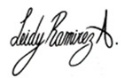 Leidy Ramirez A.